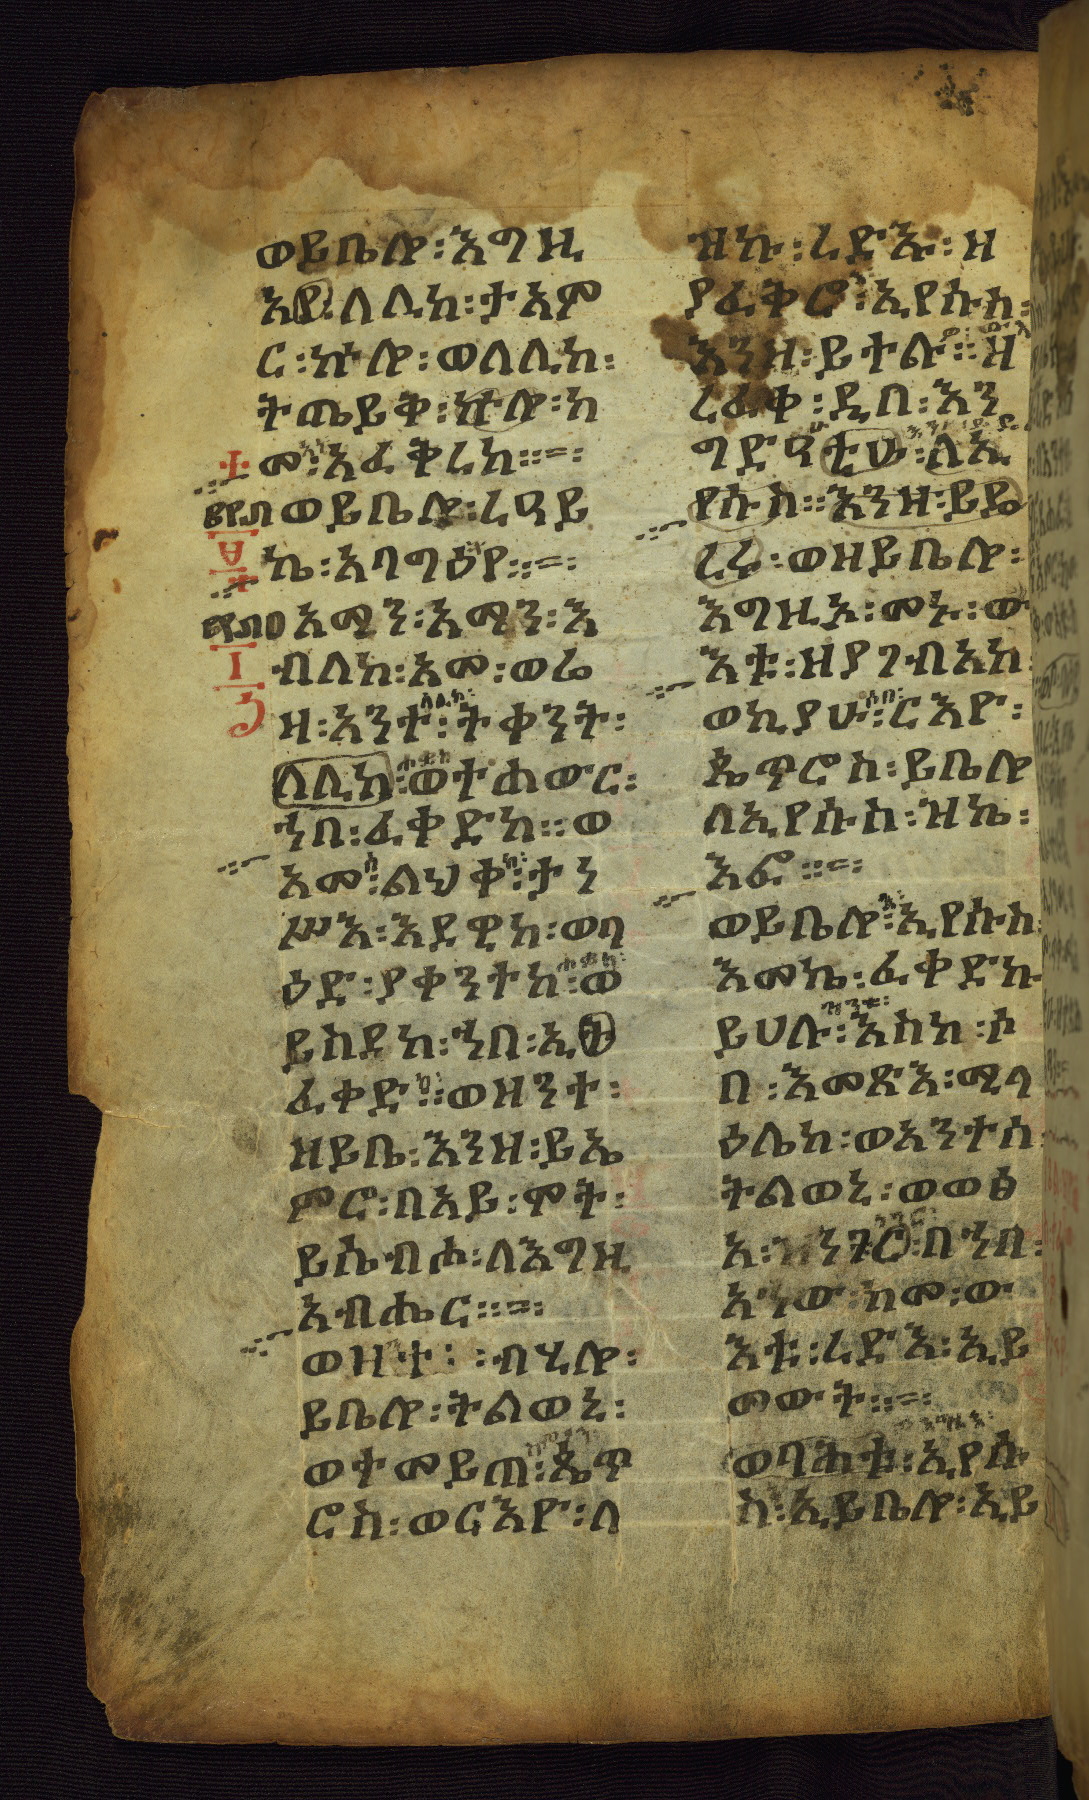 ወይቤሎ፡እግዚ
እየ፡ለሊከ፡ታአም
ር፡ኵሎ፡ወለሊከ፡
ትጤይቅ፡ኵሎ፡ከ
መ፡አፈቅረከ።=፡
ወይቤሎ፡ረዓይ
ኬ፡አባግዕየ።=፡
አማን፡አማን፡እ
ብለከ፡አመ፡ወሬ
ዛ፡አንተ፡ትቀንት፡
ለሊከ፡ወተሐውር፡
ኀበ፡ፈቀድከ።ወ
አመ፡ልህቀ፡ታነ
ሥእ፡እደዊከ፡ወባ
ዕድ፡ያቀንተከ፡ወ
ይስደከ፡ኀበ፡ኢት
ፈቀድ።ወዘንተ፡
ዘይቤ፡እንዘ፡ይኤ
ምሮ፡በአይ፡ሞት፡
ይሴብሖ፡ለእግዚ
አብሔር።=፡
ወዘተ፡፡ብሂሎ፡
ይቤሎ፡ትልወኒ፡
ወተመይጠ፡ጴጥ
ሮስ፡ወርእዮ፡ለ
ዝኩ፡ረድእ፡ዘ
ያፈቅሮ፡ኢየሱስ፡
እንዘ፡ይተሉ።ዘ
ረፈቀ፡ዲበ፡እን
ግድዓቲሁ፡ለኢ
የሱስ።እንዘ፡ይዴ
ረሩ፡ወዘይቤሎ፡
እግዚኦ፡መኑ፡ው
እቱ፡ዘያገብአከ
ወኪያሁ፡ርእዮ፡
ጴጥሮስ፡ይቤሎ
ለኢየሱስ፡ዝኬ፡
እፎ።=፡
ወይቤሎ፡ኢየሱስ
እመኬ፡ፈቀድኩ
ይሀሉ፡እስከ፡ሶ
በ፡እመጽእ፡ሚላ
ዕሌከ፡ወአንተሰ
ትልወኒ፡ወወፅ
አ፡ዝንገር፡በኀበ፡
አኀው፡ከመ፡ው
እቱ፡ረድእ፡ኢይ
መውት።=፡
ወባሕቱ፡ኢየሱ
ስ፡ኢይቤሎ፡ኢይ